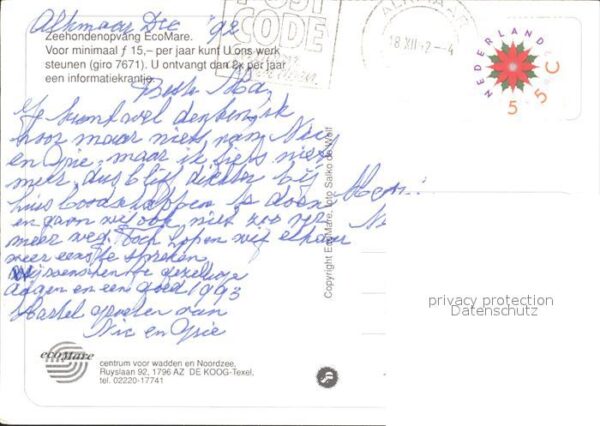 Alkmaar Dec '92
Zeehondenopvang EcoMare.
Voor minimaal ƒ 15,– per jaar kunt U ons werk
steunen (giro 7671). U ontvangt dan 2x per jaar
een informatiekrantje.
POST
CODE
ALKMAAR
18 XII 92 - 4
NEDERLAND
55 C
Beste
Je kunt wel denken ik
hoor maar niets van Nic
en Opie, maar ik fiets niet
meer, dus blijf dichter bij
huis boodschappen te doen
en gaan wij ook niet zo ver
meer weg. Toch hopen wij elkaar
weer eens te spreken
Wij wensen je gezellige
dagen en een goed 1993
Hartel groeten van
Nic en Opie
Copyright EcoMare, foto Salko de Wolf
privacy protection
Datenschutz
ecomare
centrum voor wadden en Noordzee,
Ruyslaan 92, 1796 AZ DE KOOG-Texel,
tel. 02220-17741